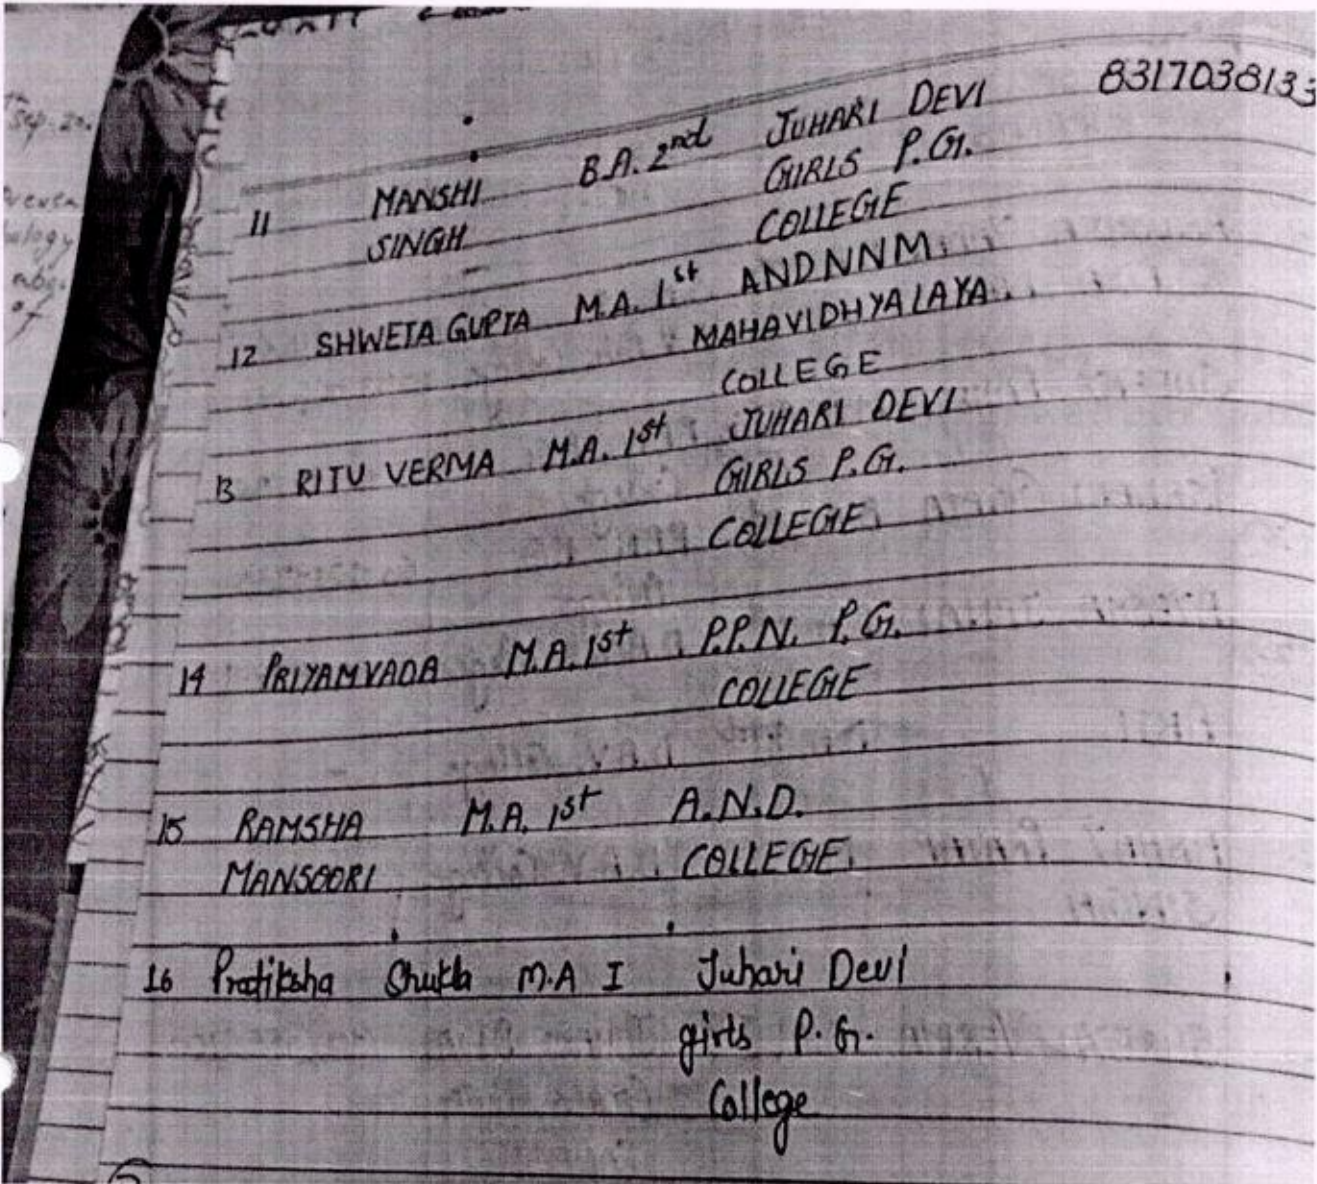 11 MANSHI B.A. 2nd JUHARI DEVI 8317038133
SINGH GIRLS P.G.
COLLEGE
12 SHWETA GUPTA M.A. 1st ANDNNM
MAHAVIDHYALAYA
COLLEGE
13 RITU VERMA M.A. 1st JUHARI DEVI
GIRLS P.G.
COLLEGE
14 PRIYAMVADA M.A. 1st P.P.N. P.G.
COLLEGE
15 RAMSHA M.A. 1st A.N.D.
MANSOORI COLLEGE
16 Pratiksha Shukla M.A I Juhari Devi
girls P.G.
College